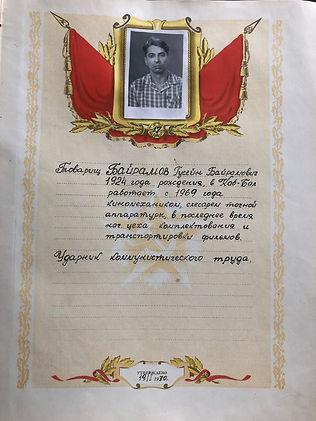 Товарищ БАЙРАМОВ Гусейн Байрамович
1924 года рождения, в Коб-Бол
работает с 1969 года
киномехаником, слесарем точной
аппаратуры, в последнее время
нач цеха комплектования и
транспортировки фильмов.
Ударник коммунистического труда.
УТВЕРЖДЕНО
1970г.